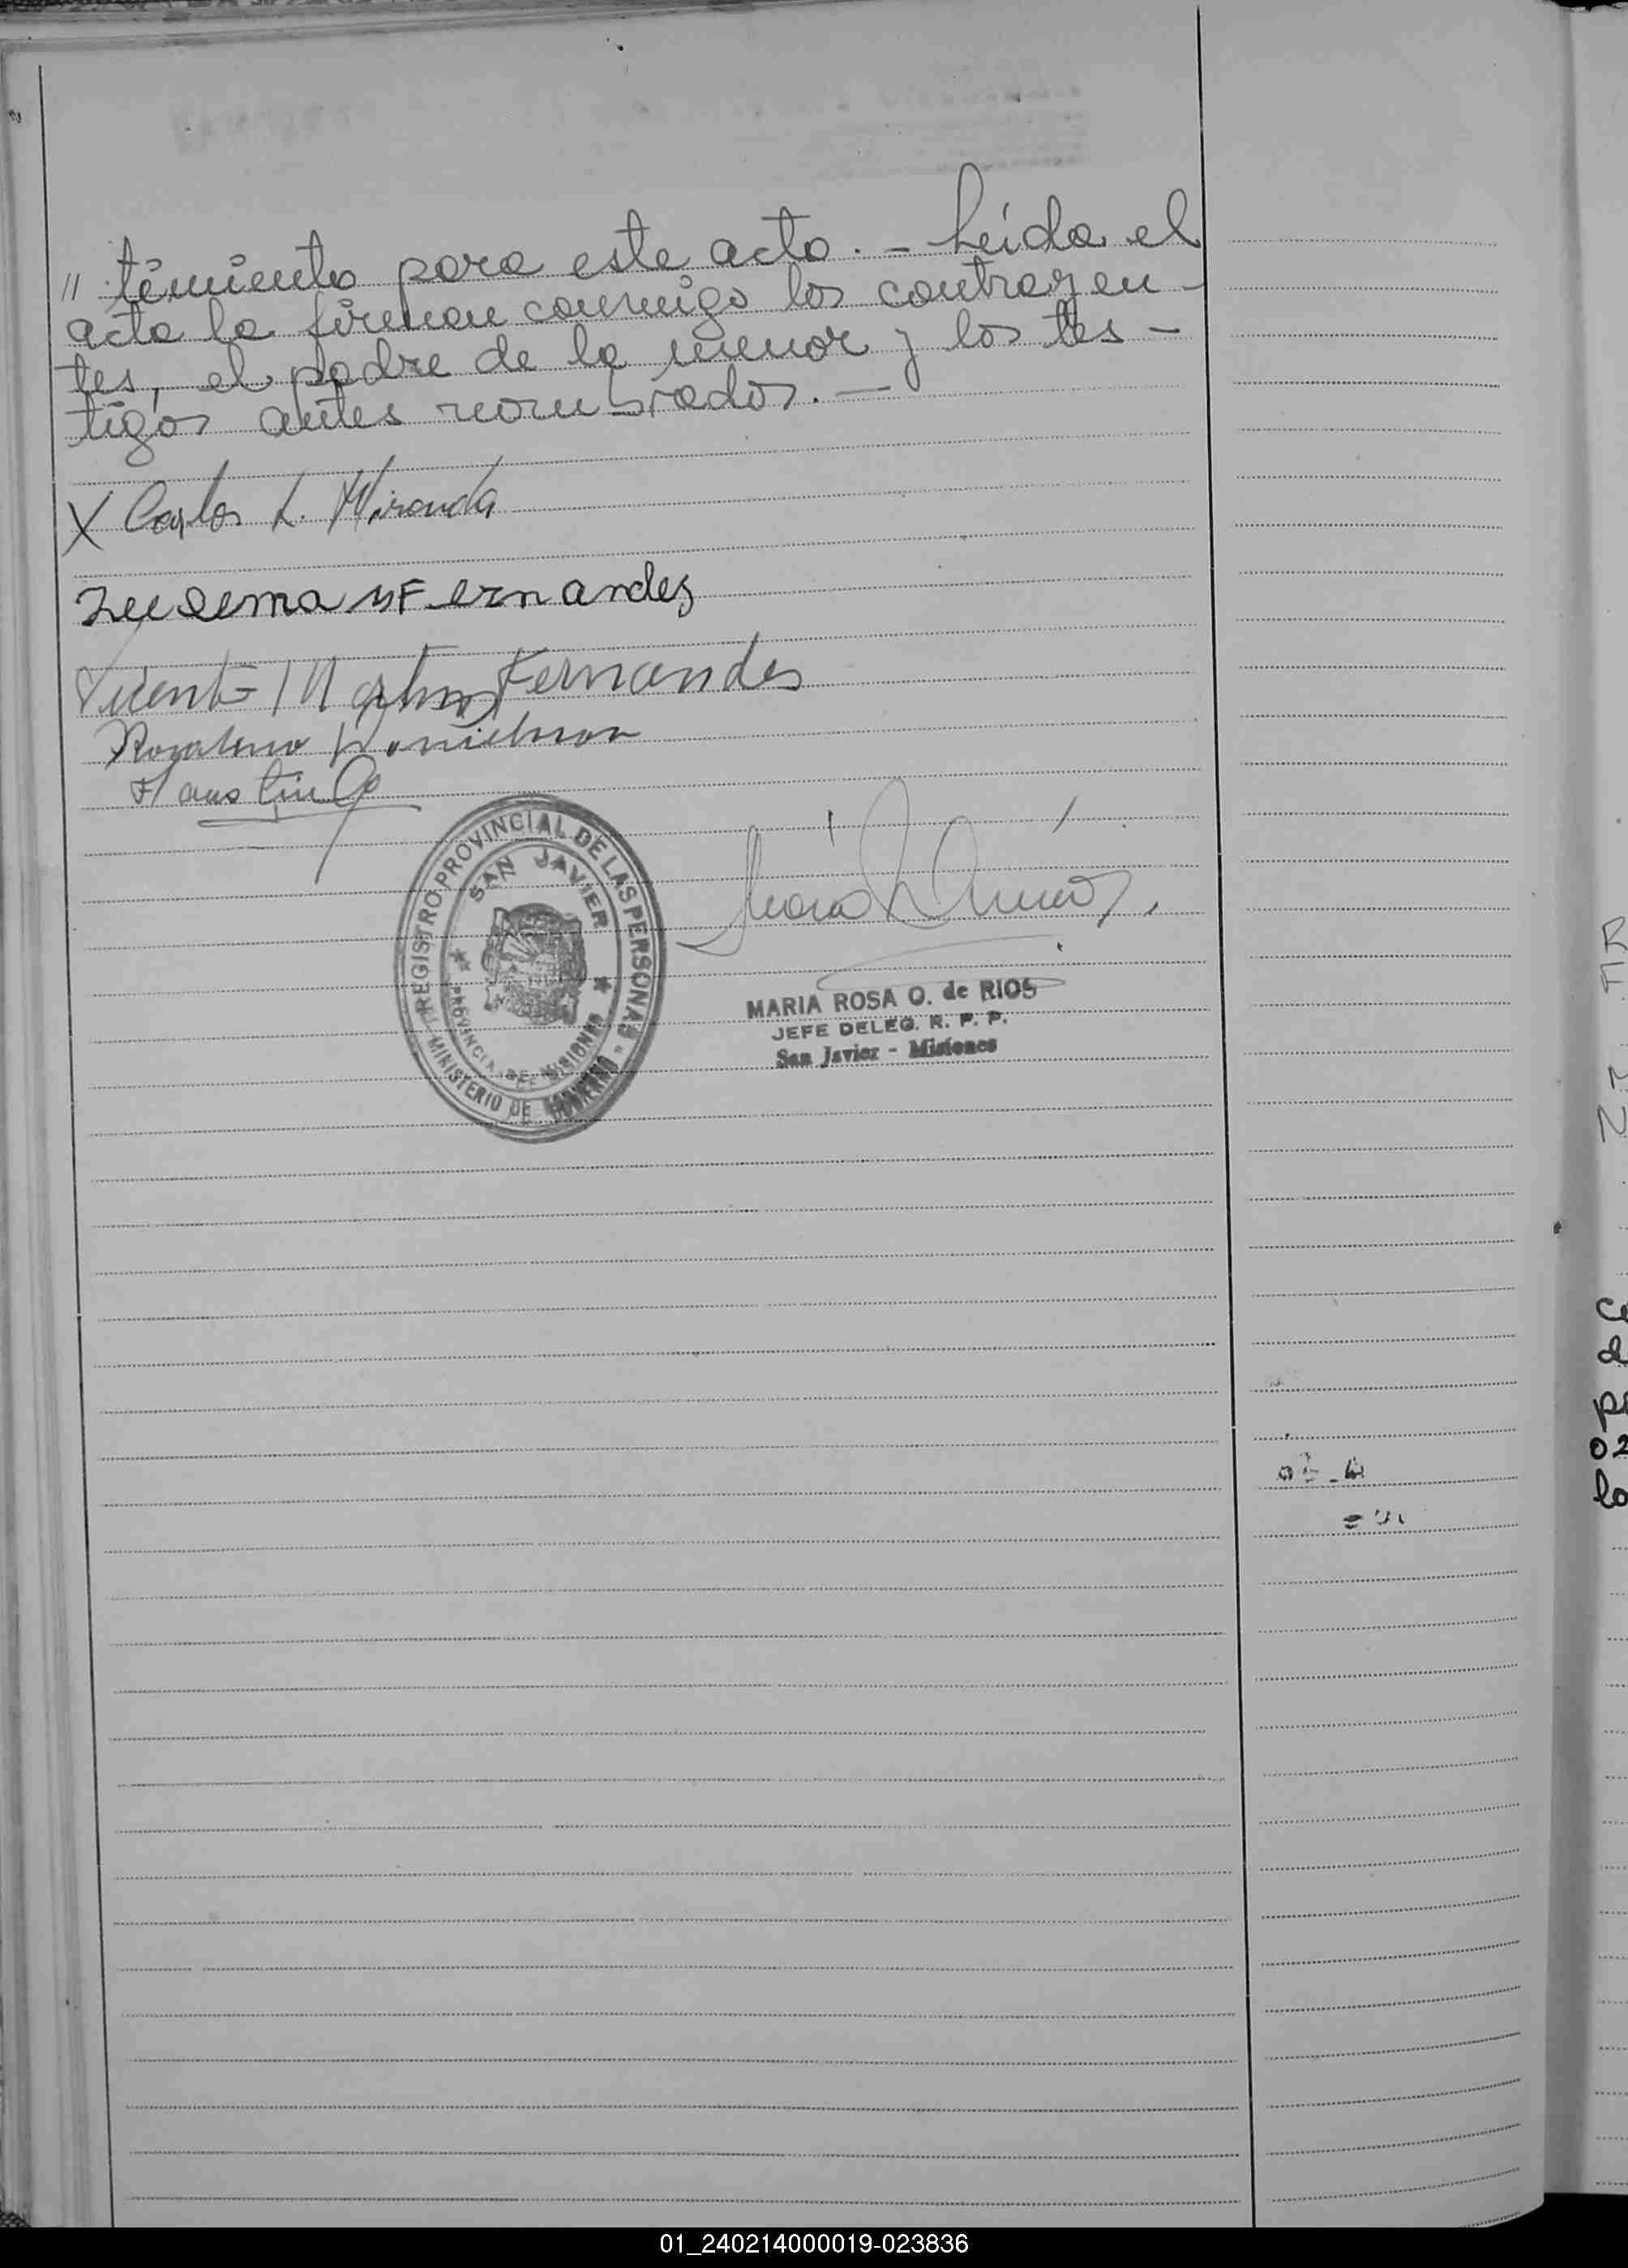 " timiento para este acto. - Leída el
acta la firman conmigo los contrayen-
tes, el padre de la menor y los tes-
tigos antes nombrados. —
X Carlos L. Miranda
Zulema M Fernandes
Vicente Martins Fernandes
Faustino
REGISTRO PROVINCIAL DE LAS PERSONAS -
SAN JAVIER
PROVINCIA DE MISIONES
MINISTERIO DE GOBIERNO
MARIA ROSA O. de RIOS
JEFE DELEG. R. P. P.
San Javier - Misiones
R
F
N
02
lo
01_240214000019-023836